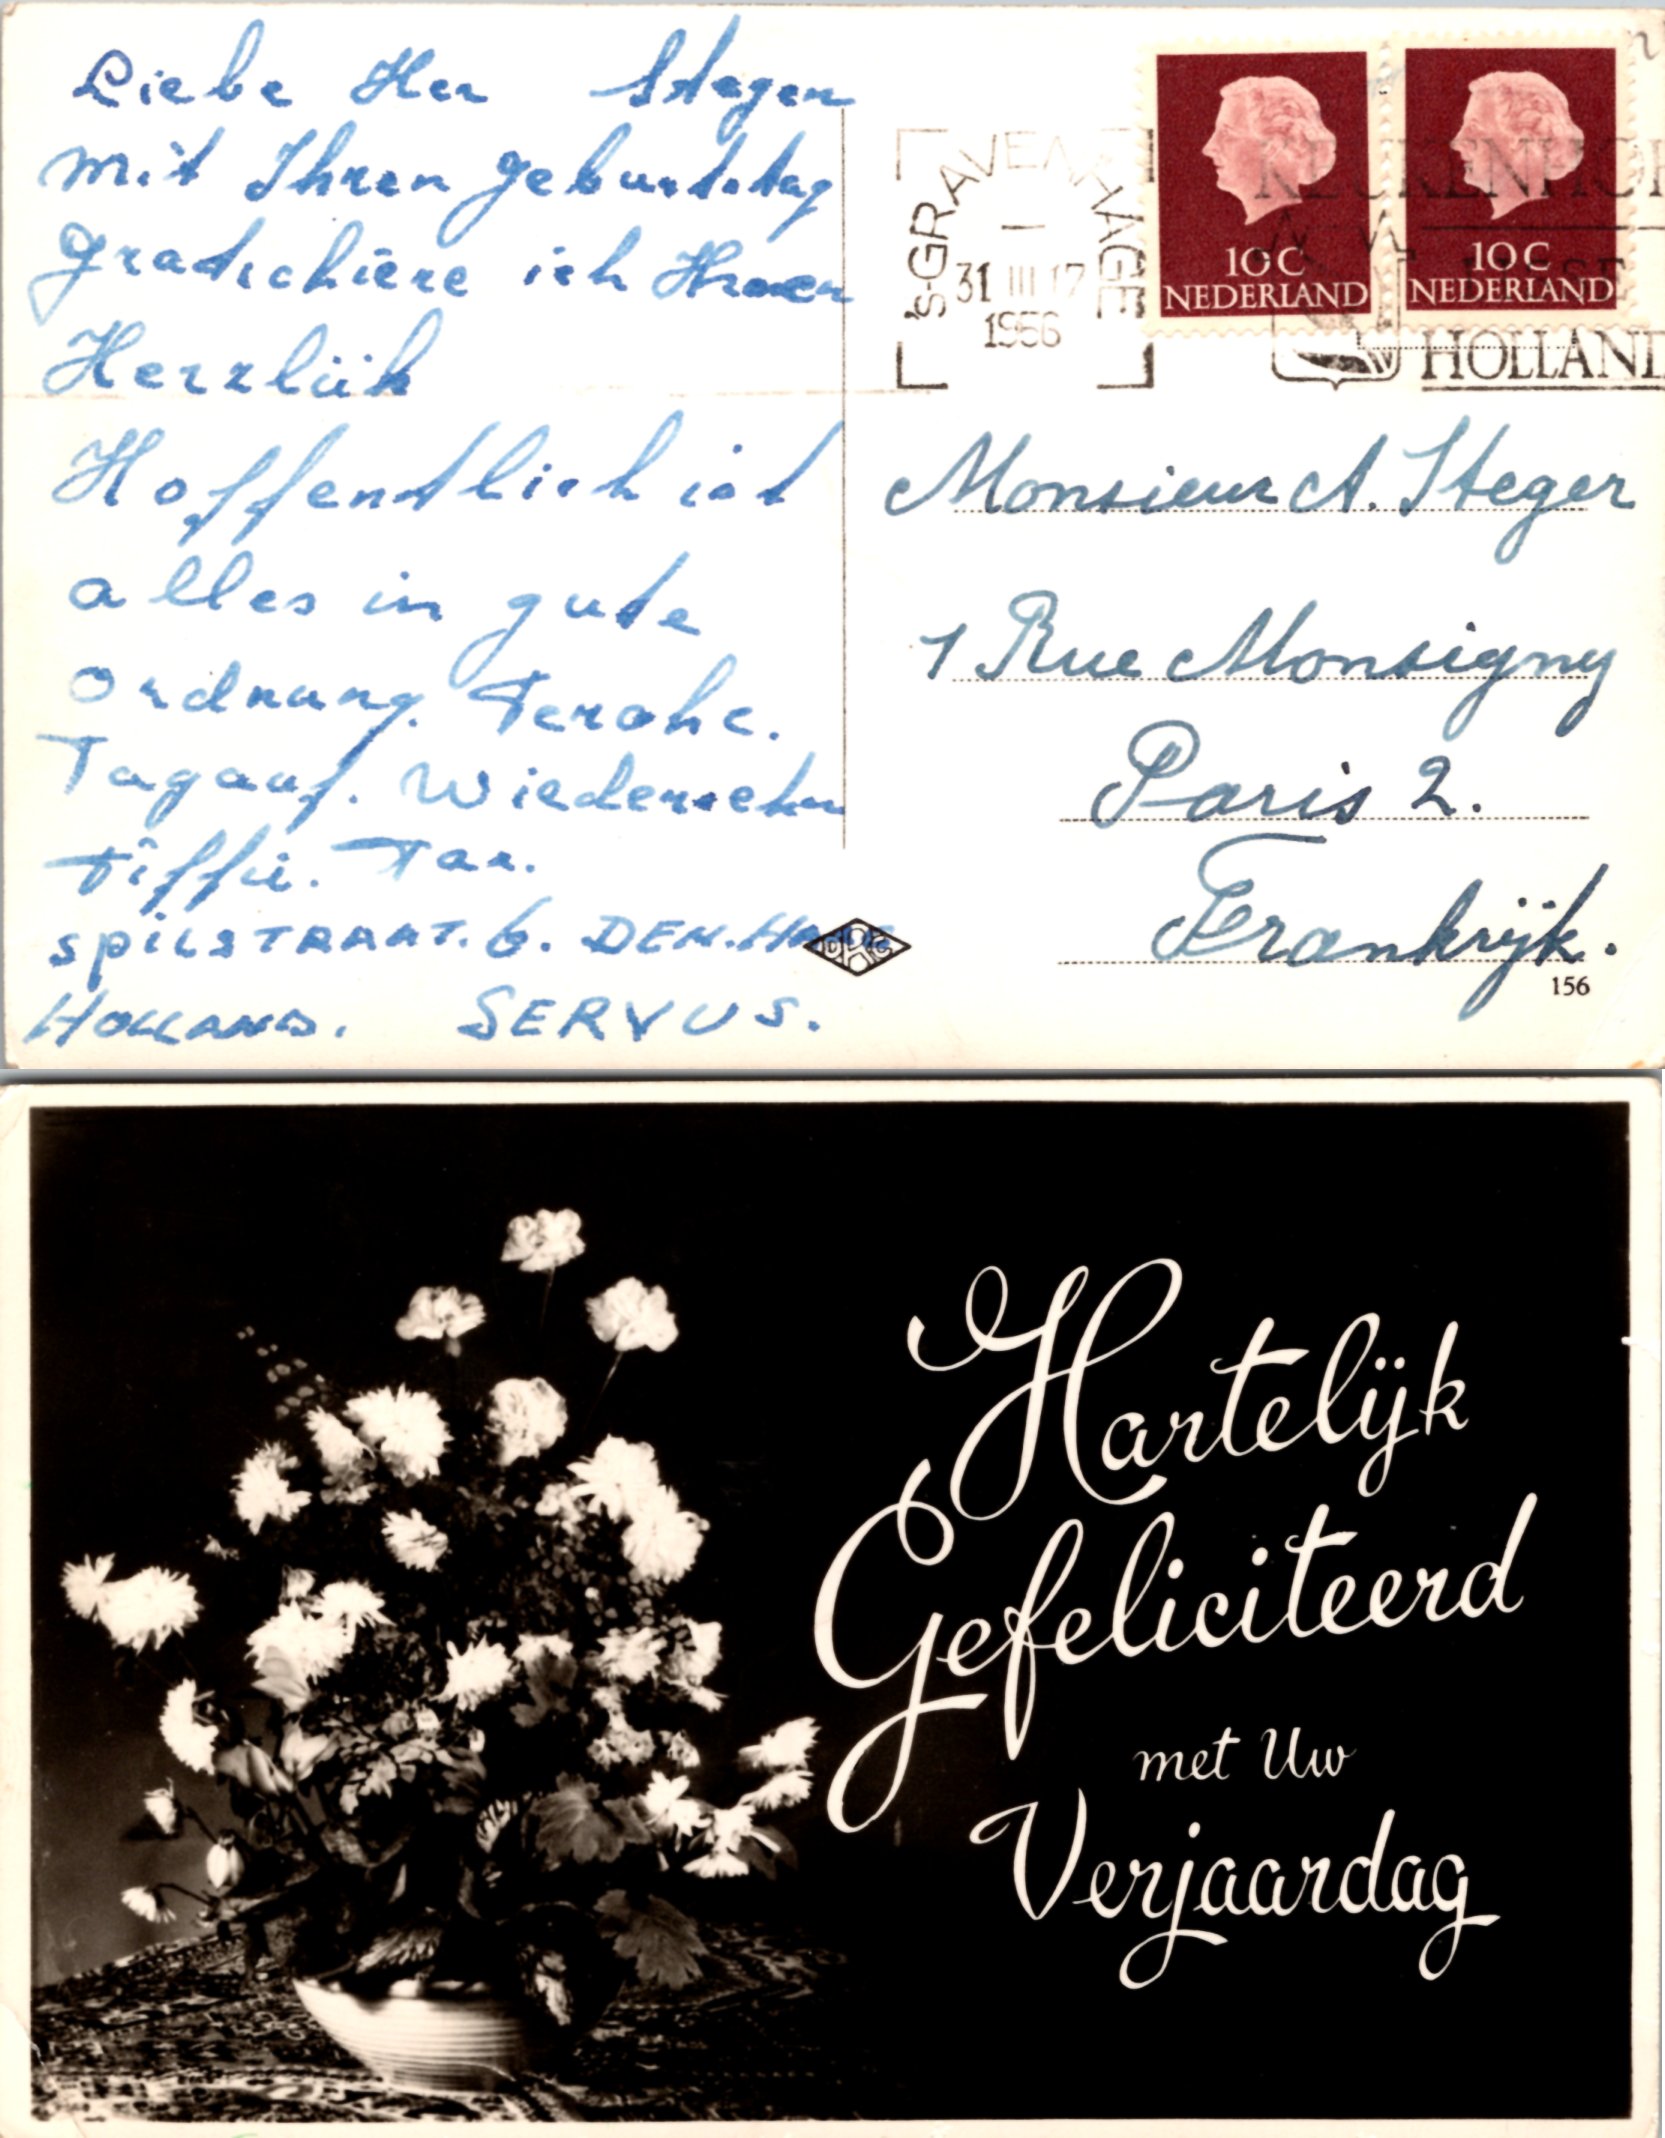 Liebe Her Steger
mit Ihren geburtstag
gratuliere ich Ihnen
Herzlich
Hoffentlich ist
alles in gute
ordnung. Ferohe.
Tag auf. Wiedersehn
Tiffi. Tax.
SPILSTRAAT. 6. DEN. HAAG
HOLLAND. SERVUS.
's-GRAVENHAGE
31 III 17
1956
KEUKENHOF
LISSE
HOLLAND
10 C
NEDERLAND
10 C
NEDERLAND
Monsieur A. Steger
1 Rue Monsigny
Paris 2.
Frankrijk.
156
Hartelijk
Gefeliciteerd
met Uw
Verjaardag